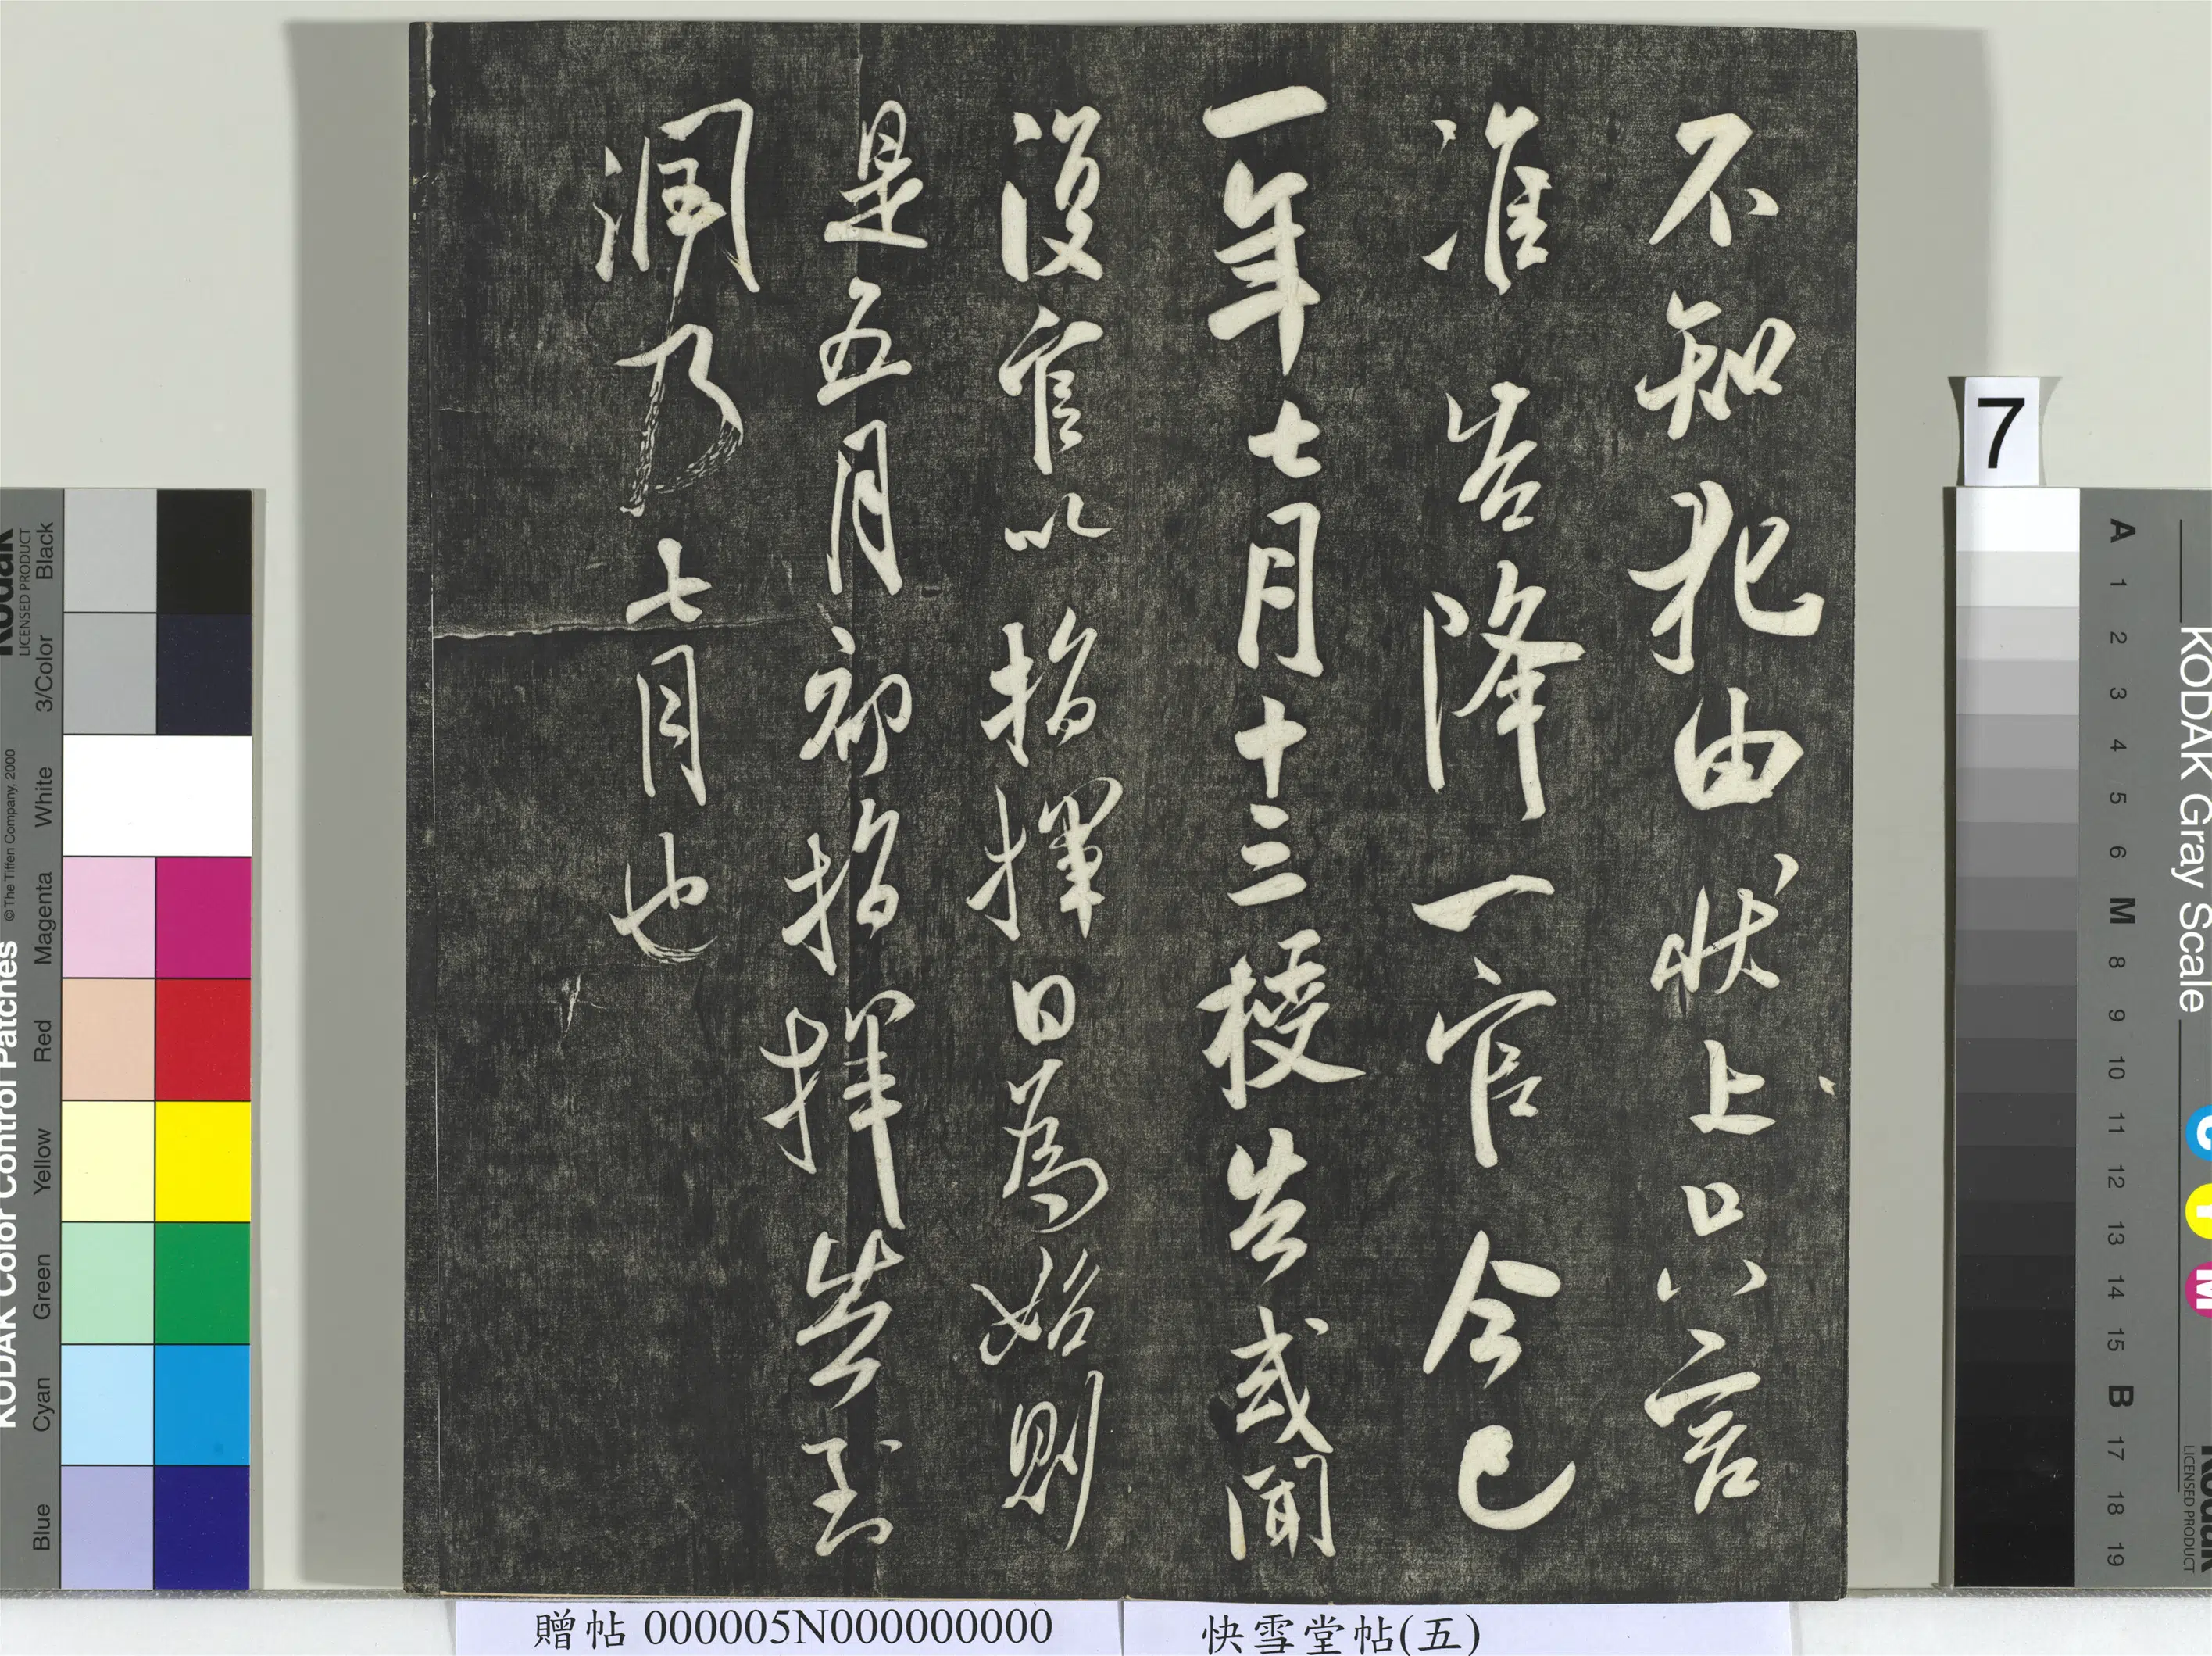 不知犯由狀上只言
准告降一官今已
一年七月十三授告或聞
復官以指揮日為始則
是五月初指揮告到
淵乃七月也
7
贈帖 000005N000000000
快雪堂帖(五)
KODAK Color Control Patches
© The Tiffen Company, 2000
Kodak
LICENSED PRODUCT
Blue
Cyan
Green
Yellow
Red
Magenta
White
3/Color
Black
KODAK Gray Scale
A 1 2 3 4 5 6 M 8 9 10 11 12 13 14 15 B 17 18 19
C
Y
M
Kodak
LICENSED PRODUCT